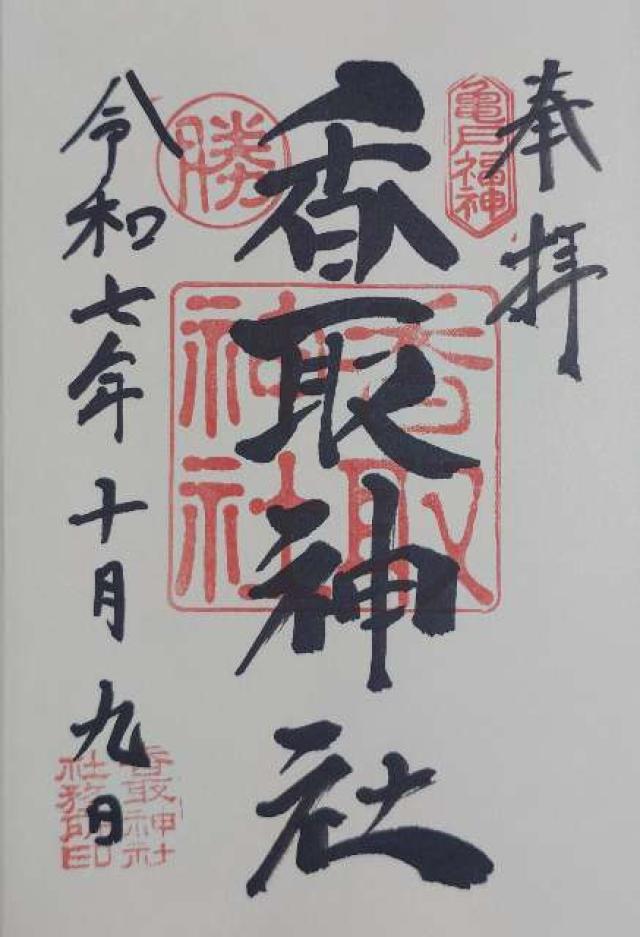 奉拝
亀戸福神
香取神社
香取神社
勝
令和七年十月九日
香取神社
社務所印